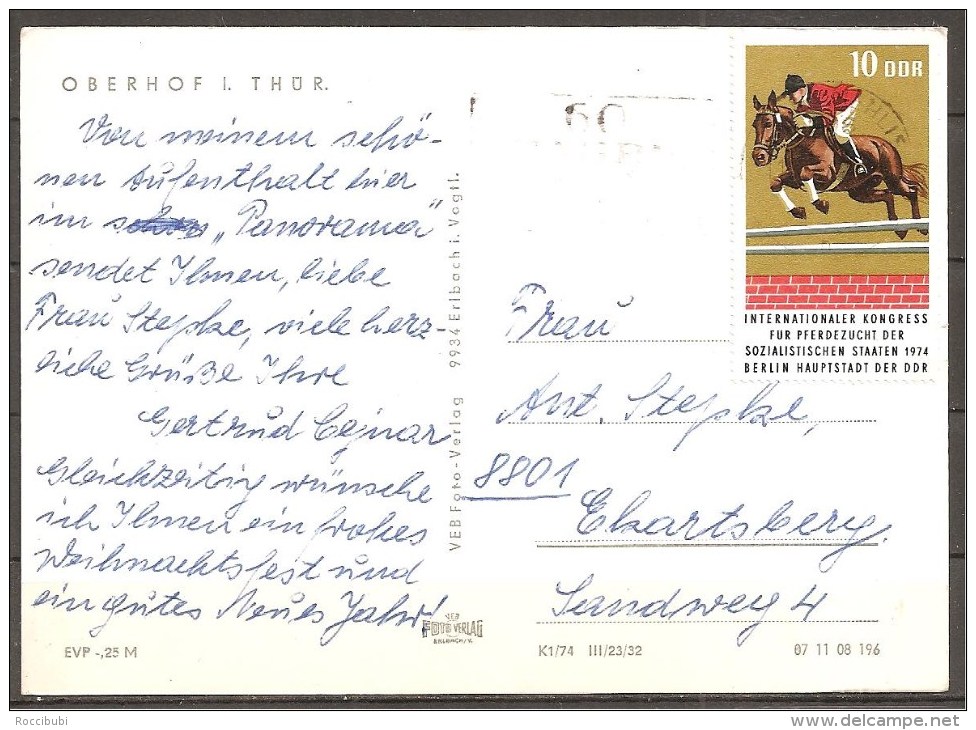 OBERHOF I. THÜR.
Von meinem schö-
nen Aufenthalt hier
im „Panorama"
sendet Ihnen, liebe
Frau Stepke, viele herz-
liche Grüße Ihre
Gertrud
Gleichzeitig wünsche
ich Ihnen ein frohes
Weihnachtsfest und
ein gutes Neues Jahr!
EVP -,25 M
VEB Foto-Verlag 9934 Erlbach i. Vogtl.
VEB
FOTO VERLAG
ERLBACH/V.
10 DDR
INTERNATIONALER KONGRESS
FÜR PFERDEZUCHT DER
SOZIALISTISCHEN STAATEN 1974
BERLIN HAUPTSTADT DER DDR
Frau
Ant. Stepke,
8801
Ekartsberg.
Sandweg 4
K1/74 III/23/32
07 11 08 196
Roccibubi
www.delcampe.net